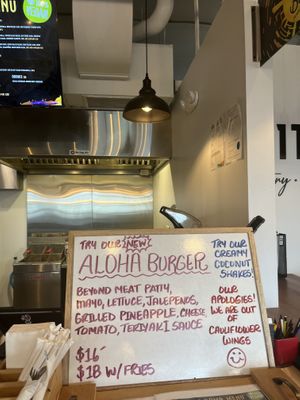 NU
TRY OUR NEW
ALOHA BURGER
BEYOND MEAT PATTY,
MAYO, LETTUCE, JALEPENOS,
GRILLED PINEAPPLE, CHEESE,
TOMATO, TERIYAKI SAUCE
$16
$18 W/ FRIES
TRY OUR
CREAMY
COCONUT
SHAKES!
OUR
APOLOGIES!
WE ARE OUT
OF
CAULIFLOWER
WINGS